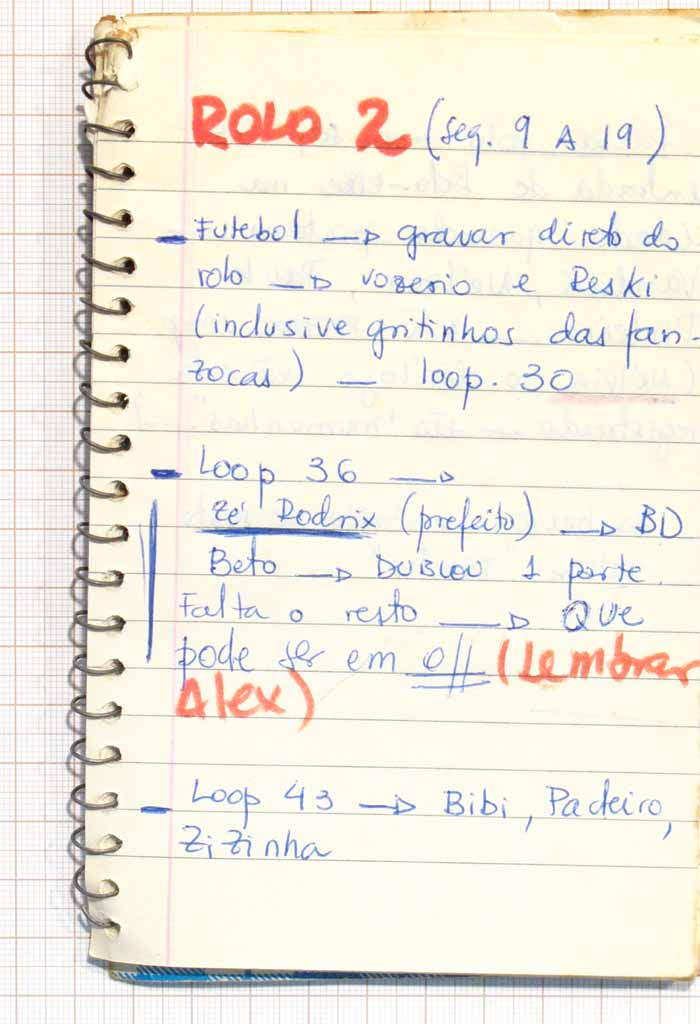 ROLO 2 (seq. 9 A 19)
- Futebol → gravar direto do
rolo → vozerio e Reski
(inclusive gritinhos das fan-
zocas) — loop. 30
- Loop 36 →
Zé Rodrix (prefeito) → BD
Beto → DUBLOU 1 parte.
Falta o resto → QUE
pode ser em off (Lembrar
Alex)
- Loop 43 → Bibi, Padeiro,
Zizinha